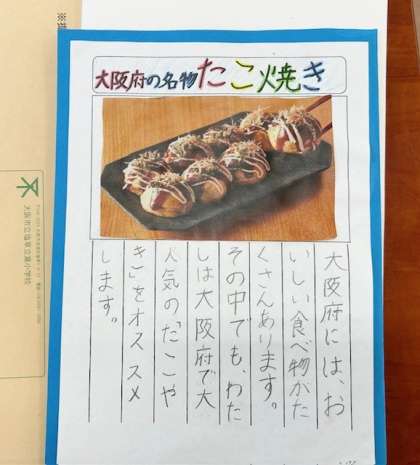 大阪府の名物たこ焼き
大阪府には、お
いしい食べ物がた
くさんあります。
その中でも、わた
しは大阪府で大
人気の「たこや
き」をオススメ
します。